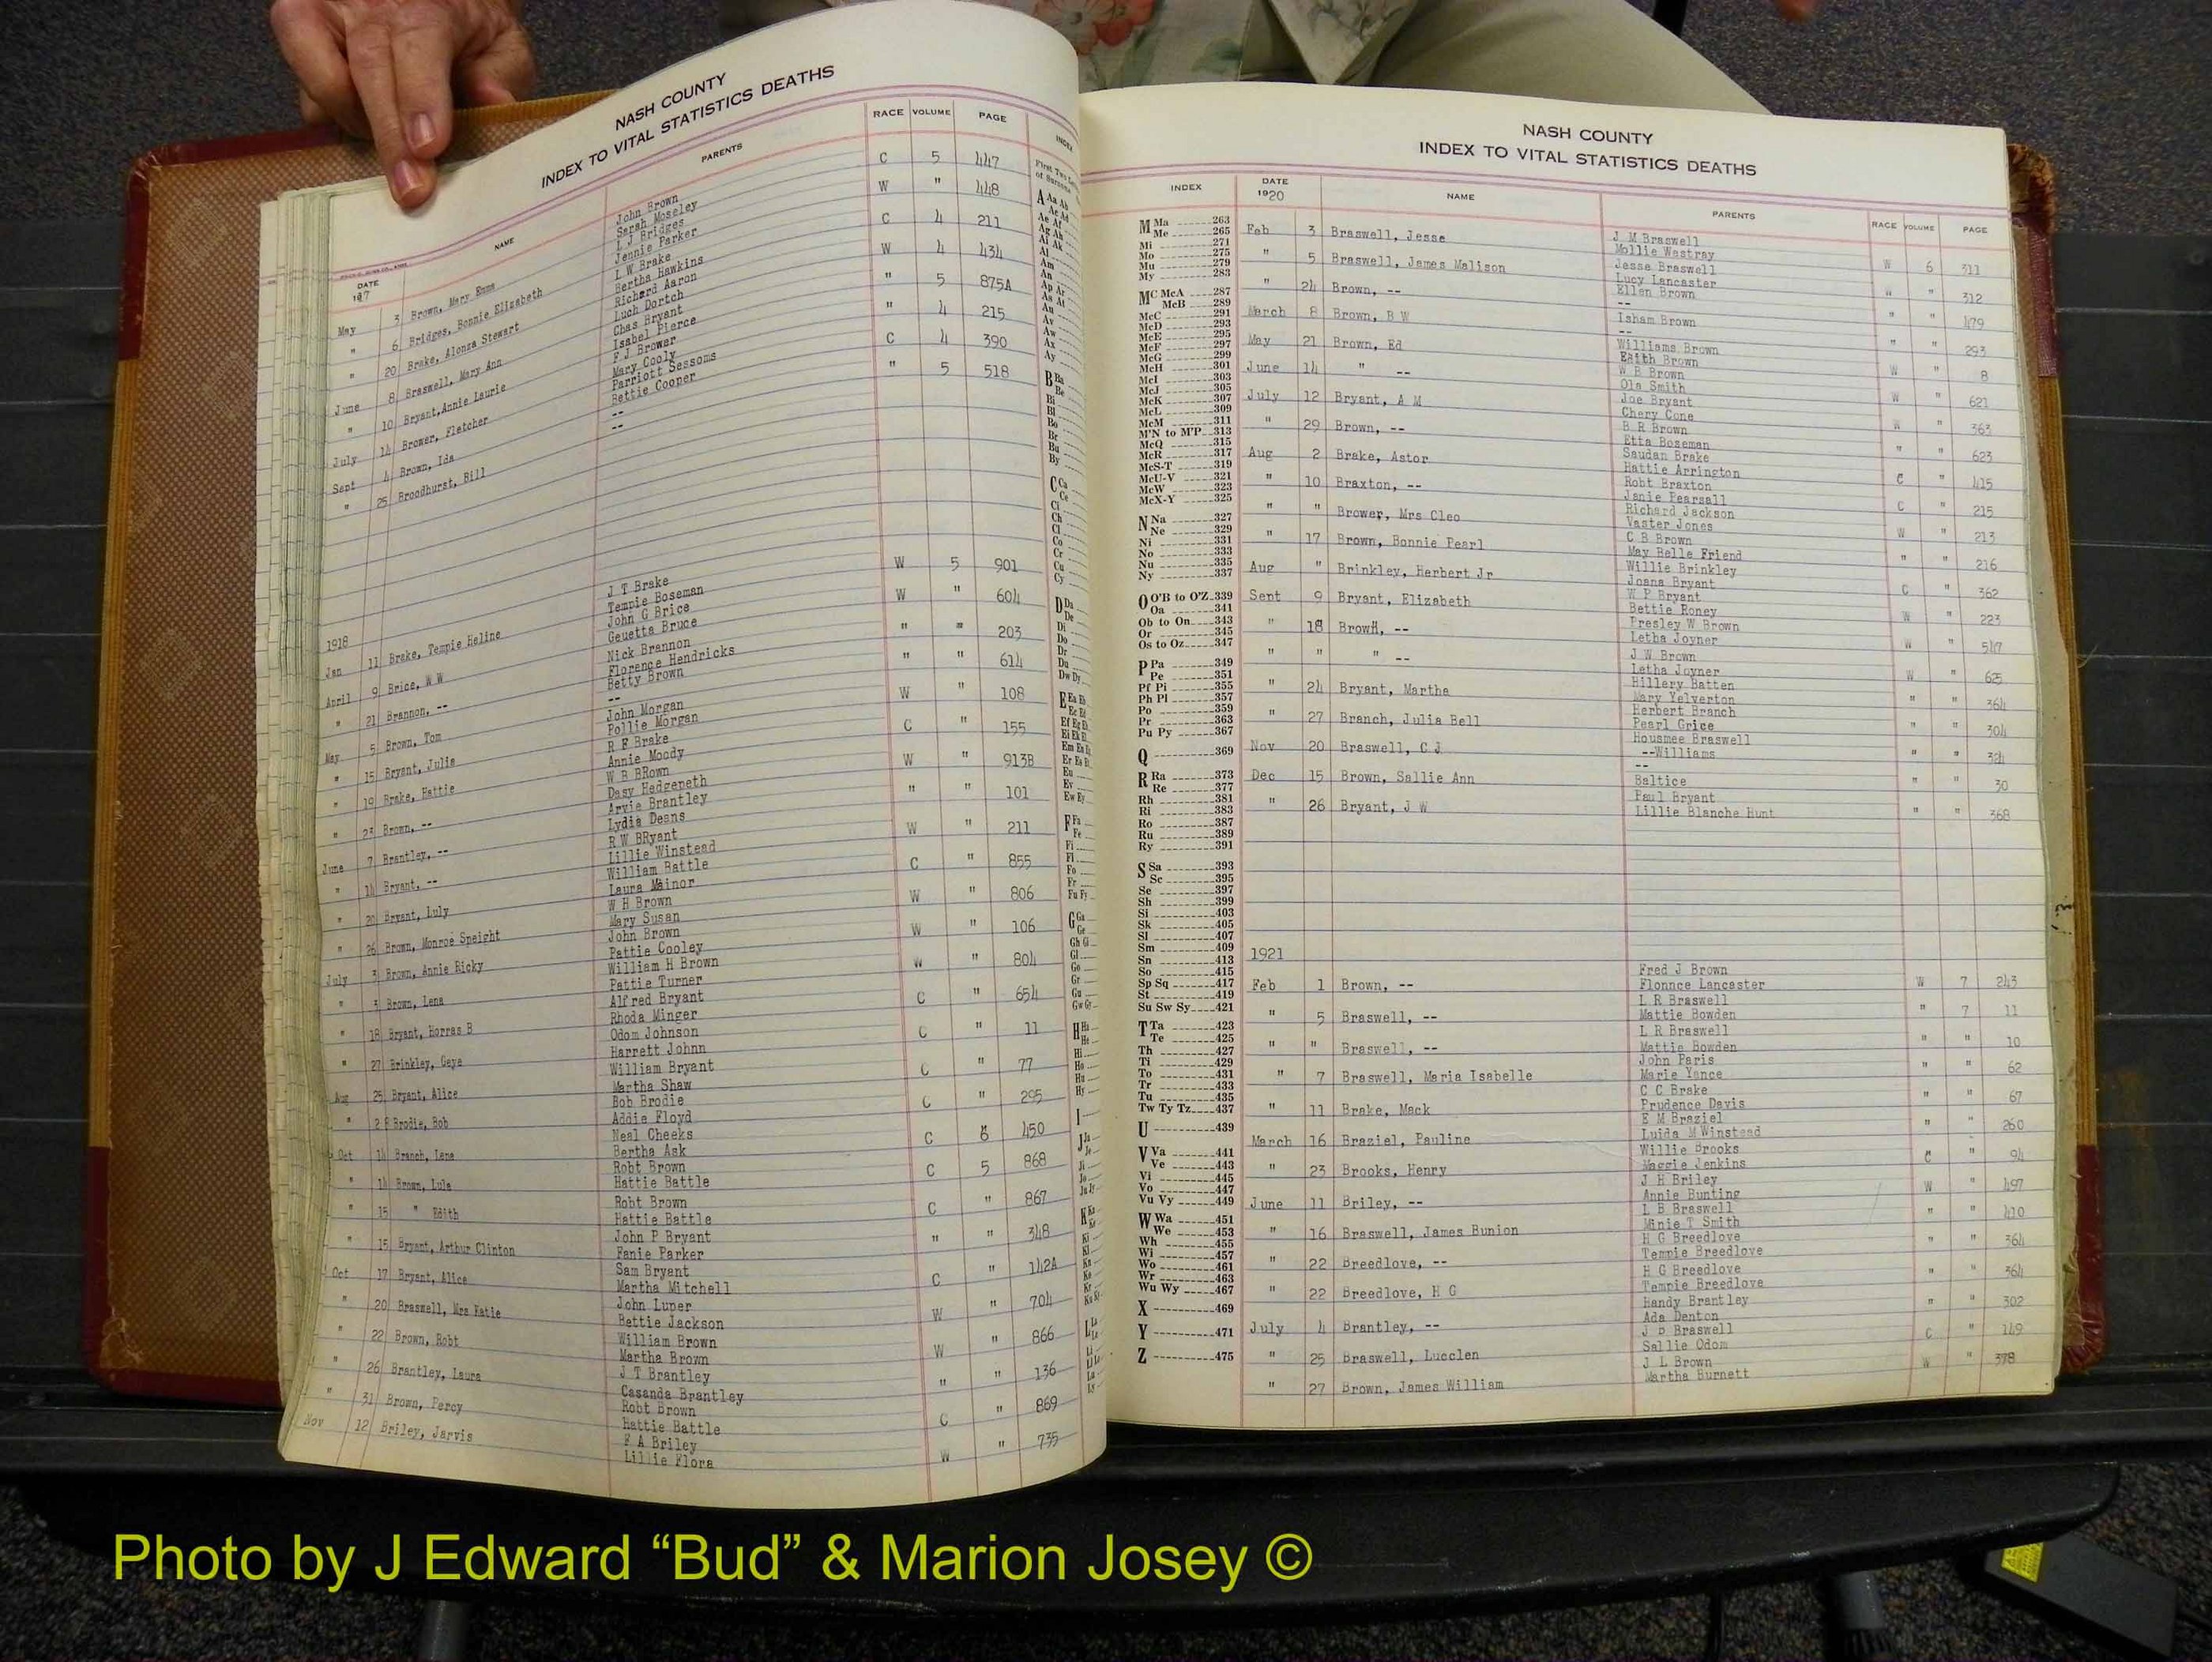 NASH COUNTY
INDEX TO VITAL STATISTICS DEATHS
DATE NAME PARENTS RACE VOLUME PAGE
May 3 Brown, Mary Emma John Brown C 5 447
Sarah Moseley
" 6 Bridges, Bonnie Elizabeth L J Bridges W " 448
Jennie Parker
" 20 Brake, Alonza Stewart L W Brake C 4 211
Bertha Hawkins
June 8 Braswell, Mary Ann Richard Aaron W 4 434
Luch Dortch
" 10 Bryant, Annie Laurie Chas Bryant " 5 875A
Isabel Pierce
July 14 Brower, Fletcher F J Brower " 4 215
Mary Cooly
Sept 4 Brown, Ida Parriott Sessoms C 4 390
Bettie Cooper
" 25 Broodhurst, Bill -- " 5 518
--
1918
Jan 11 Brake, Tempie Heline J T Brake W 5 901
Tempie Boseman
April 9 Brice, W W John G Brice W " 604
Geuetta Bruce
" 21 Brannon, -- Nick Brannon " " 203
Florence Hendricks
May 5 Brown, Tom Betty Brown " " 614
--
" 15 Bryant, Julia John Morgan W " 108
Pollie Morgan
" 19 Brake, Hattie R F Brake C " 155
Annie Moody
" 23 Brown, -- W R BRown W " 913B
Dasy Hedgepeth
June 7 Brantley, -- Arvie Brantley " " 101
Lydia Deans
" 14 Bryant, -- R W BRyant W " 211
Lillie Winstead
" 20 Bryant, Luly William Battle C " 855
Laura Mainor
" 26 Brown, Monroe Speight W H Brown W " 806
Mary Susan
July 3 Brown, Annie Ricky John Brown W " 106
Pattie Cooley
" 3 Brown, Lena William H Brown W " 804
Pattie Turner
" 18 Bryant, Horras B Alfred Bryant C " 654
Rhoda Minger
" 27 Brinkley, Gaye Odom Johnson C " 11
Harrett Johnn
Aug 25 Bryant, Alice William Bryant C " 77
Martha Shaw
" 28 Brodie, Bob Bob Brodie C " 295
Addie Floyd
Oct 14 Branch, Lena Neal Cheeks C 6 450
Bertha Ask
" 14 Brown, Lula Robt Brown C 5 868
Hattie Battle
" 15 " Edith Robt Brown C " 867
Hattie Battle
" 15 Bryant, Arthur Clinton John P Bryant " " 348
Fanie Parker
Oct 17 Bryant, Alice Sam Bryant C " 142A
Martha Mitchell
" 20 Braswell, Mrs Katie John Luper W " 704
Bettie Jackson
" 22 Brown, Robt William Brown W " 866
Martha Brown
" 26 Brantley, Laura J T Brantley " " 136
Casanda Brantley
" 31 Brown, Percy Robt Brown C " 869
Hattie Battle
Nov 12 Briley, Jarvis F A Briley W " 735
Lillie Flora
NASH COUNTY
INDEX TO VITAL STATISTICS DEATHS
INDEX DATE NAME PARENTS RACE VOLUME PAGE
1920
M Ma 263
Me 265
Mi 271
Mo 275
Mu 279
My 283
MC McA 287
McB 289
McC 291
McD 293
McE 295
McF 297
McG 299
McH 301
McI 303
McJ 305
McK 307
McL 309
McM 311
M'N to M'P 313
McQ 315
McR 317
McS-T 319
McU-V 321
McW 323
McX-Y 325
N Na 327
Ne 329
Ni 331
No 333
Nu 335
Ny 337
O O'B to O'Z 339
Oa 341
Ob to On 343
Or 345
Os to Oz 347
P Pa 349
Pe 351
Pf Pi 355
Ph Pl 357
Po 359
Pr 363
Pu Py 367
Q 369
R Ra 373
Re 377
Rh 381
Ri 383
Ro 387
Ru 389
Ry 391
S Sa 393
Sc 395
Se 397
Sh 399
Si 403
Sk 405
Sl 407
Sm 409
Sn 413
So 415
Sp Sq 417
St 419
Su Sw Sy 421
T Ta 423
Te 425
Th 427
Ti 429
To 431
Tr 433
Tu 435
Tw Ty Tz 437
U 439
V Va 441
Ve 443
Vi 445
Vo 447
Vu Vy 449
W Wa 451
We 453
Wh 455
Wi 457
Wo 461
Wr 463
Wu Wy 467
X 469
Y 471
Z 475
Feb 3 Braswell, Jesse J M Braswell W 6 311
Mollie Westray
" 5 Braswell, James Malison Jesse Braswell W " 312
Lucy Lancaster
" 24 Brown, -- Ellen Brown " " 479
--
March 8 Brown, B W Isham Brown " " 293
--
May 21 Brown, Ed Williams Brown W " 8
Edith Brown
June 14 " -- W B Brown W " 621
Ola Smith
July 12 Bryant, A M Joe Bryant W " 363
Chery Cone
" 29 Brown, -- B R Brown " " 623
Etta Boseman
Aug 2 Brake, Astor Saudan Brake C " 415
Hattie Arrington
" 10 Braxton, -- Robt Braxton C " 215
Janie Pearsall
" " Brower, Mrs Cleo Richard Jackson W " 213
Vaster Jones
" 17 Brown, Bonnie Pearl C B Brown " " 216
May Belle Friend
Aug " Brinkley, Herbert Jr Willie Brinkley C " 362
Joana Bryant
Sept 9 Bryant, Elizabeth W P Bryant W " 223
Bettie Roney
" 18 Brown, -- Presley W Brown W " 547
Letha Joyner
" " " -- J W Brown W " 625
Letha Joyner
" 24 Bryant, Martha Hillery Batten " " 364
Mary Yelverton
" 27 Branch, Julia Bell Herbert Branch " " 304
Pearl Grice
Nov 20 Braswell, C J Housmee Braswell " " 324
--Williams
Dec 15 Brown, Sallie Ann -- " " 30
Baltice
" 26 Bryant, J W Paul Bryant " " 368
Lillie Blanche Hunt
1921
Feb 1 Brown, -- Fred J Brown W 7 243
Flonnce Lancaster
" 5 Braswell, -- L R Braswell " 7 11
Mattie Bowden
" " Braswell, -- L R Braswell " " 10
Mattie Bowden
" 7 Braswell, Maria Isabelle John Paris " " 62
Marie Vance
" 11 Brake, Mack C C Brake " " 67
Prudence Davis
March 16 Braziel, Pauline E M Braziel " " 260
Luida M Winstead
" 23 Brooks, Henry Willie Brooks C " 94
Maggie Jenkins
June 11 Briley, -- J H Briley W " 497
Annie Bunting
" 16 Braswell, James Bunion L B Braswell " " 410
Minie T Smith
" 22 Breedlove, -- H G Breedlove " " 364
Tempie Breedlove
" 22 Breedlove, H G H G Breedlove " " 364
Tempie Breedlove
July 4 Brantley, -- Handy Brantley " " 302
Ada Denton
" 25 Braswell, Lucclen J B Braswell C " 149
Sallie Odom
" 27 Brown, James William J L Brown W " 378
Martha Burnett
Photo by J Edward “Bud” & Marion Josey ©